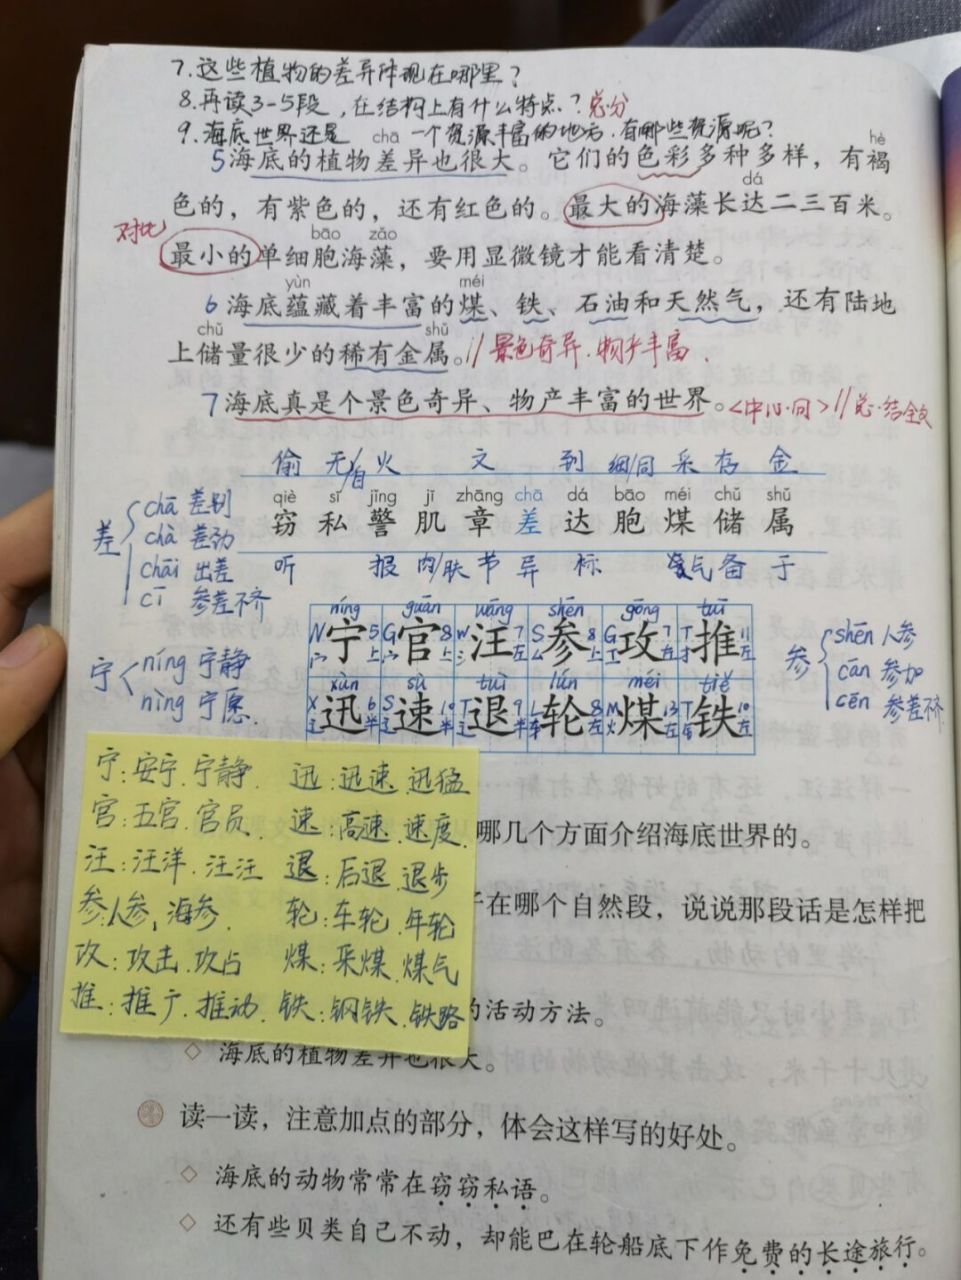 7.这些植物的差异体现在哪里?
8.再读3-5段,在结构上有什么特点?总分
9.海底世界还是一个资源丰富的地方,有哪些资源呢?
chā hè
5海底的植物差异也很大。它们的色彩多种多样,有褐
dá
色的,有紫色的,还有红色的。最大的海藻长达二三百米。
对比
bāo zǎo
最小的单细胞海藻,要用显微镜才能看清楚。
yùn méi
6海底蕴藏着丰富的煤、铁、石油和天然气,还有陆地
chǔ shǔ
上储量很少的稀有金属。//景色奇异.物产丰富.
7海底真是个景色奇异、物产丰富的世界。<中心句>//总.结全文
偷 无/自 火 文 到 细/同 采 存 金
qiè sī jǐng jī zhāng chā dá bāo méi chǔ shǔ
窃 私 警 肌 章 差 达 胞 煤 储 属
听 报 肉/肤 节 异 标 气 备 于
差
chā 差别
chà 差劲
chāi 出差
cī 参差不齐
níng guān wāng shēn gōng tuī
N宁5上 G官8上 W汪7左 S参8上 G攻7左 T推11左
xùn sù tuì lún méi tiě
X迅6半 S速10半 T退9半 L轮8左 M煤13左 T铁10左
宁
níng 宁静
nìng 宁愿
参
shēn 人参
cān 参加
cēn 参差不齐
宁:安宁.宁静. 迅:迅速.迅猛
官:五官.官员. 速:高速.速度.
汪:汪洋.汪汪 退:后退.退步
参:人参,海参 轮:车轮.年轮
攻:攻击.攻占 煤:采煤.煤气
推:推广.推动. 铁:钢铁.铁路
哪几个方面介绍海底世界的。
在哪个自然段,说说那段话是怎样把
的活动方法。
◇ 海底的植物差异也很大。
读一读,注意加点的部分,体会这样写的好处。
◇ 海底的动物常常在窃窃私语。
◇ 还有些贝类自己不动,却能巴在轮船底下作免费的长途旅行。